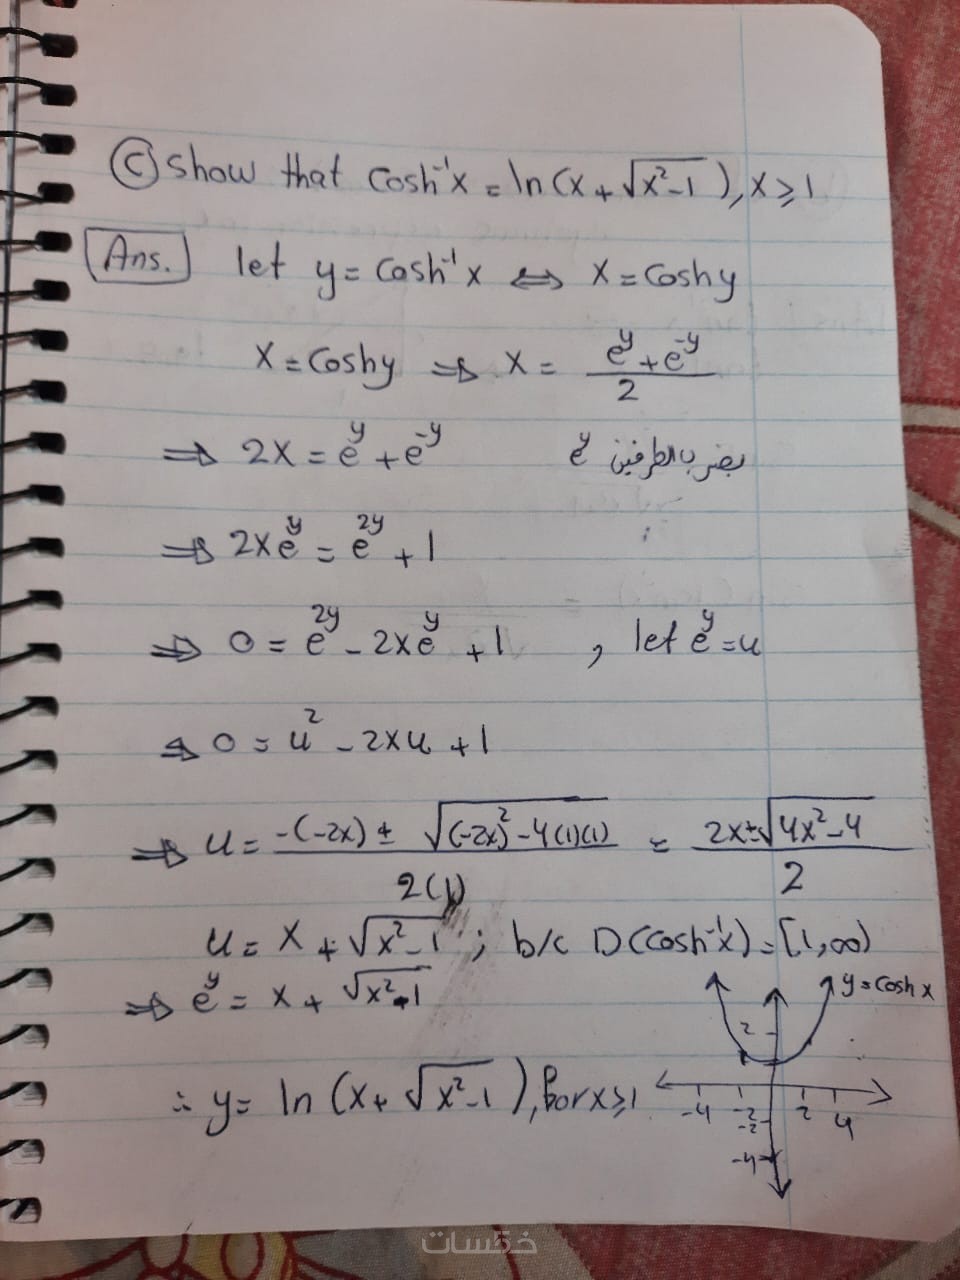 (c) Show that Cosh⁻¹x = ln(x + √(x²-1)), x ≥ 1
Ans. let y = Cosh⁻¹x ⇔ x = Coshy
x = Coshy ⇒ x = (e^y + e^-y)/2
⇒ 2x = e^y + e^-y بضرب الطرفين e^y
⇒ 2xe^y = e^2y + 1
⇒ 0 = e^2y - 2xe^y + 1 , let e^y = u
⇒ 0 = u² - 2xu + 1
⇒ u = (-(-2x) ± √((-2x)² - 4(1)(1)))/2(1) = (2x ± √(4x² - 4))/2
u = x + √(x²-1) ; b/c D(Cosh⁻¹x) = [1,∞)
⇒ e^y = x + √(x²-1)
y = cosh x
2
∴ y = ln(x + √(x²-1)), for x ≥ 1
-4 -2 2 4
-2
-4
خمسات